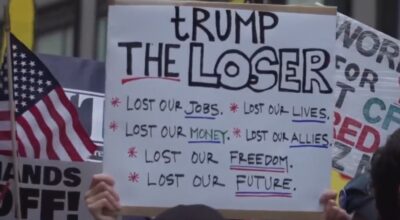 tRUMP
THE LOSER
* LOST OUR JOBS. * LOST OUR LIVES.
* LOST OUR MONEY. * LOST OUR ALLIES.
* LOST OUR FREEDOM.
* LOST OUR FUTURE.
HANDS
OFF!
WOR
FOR